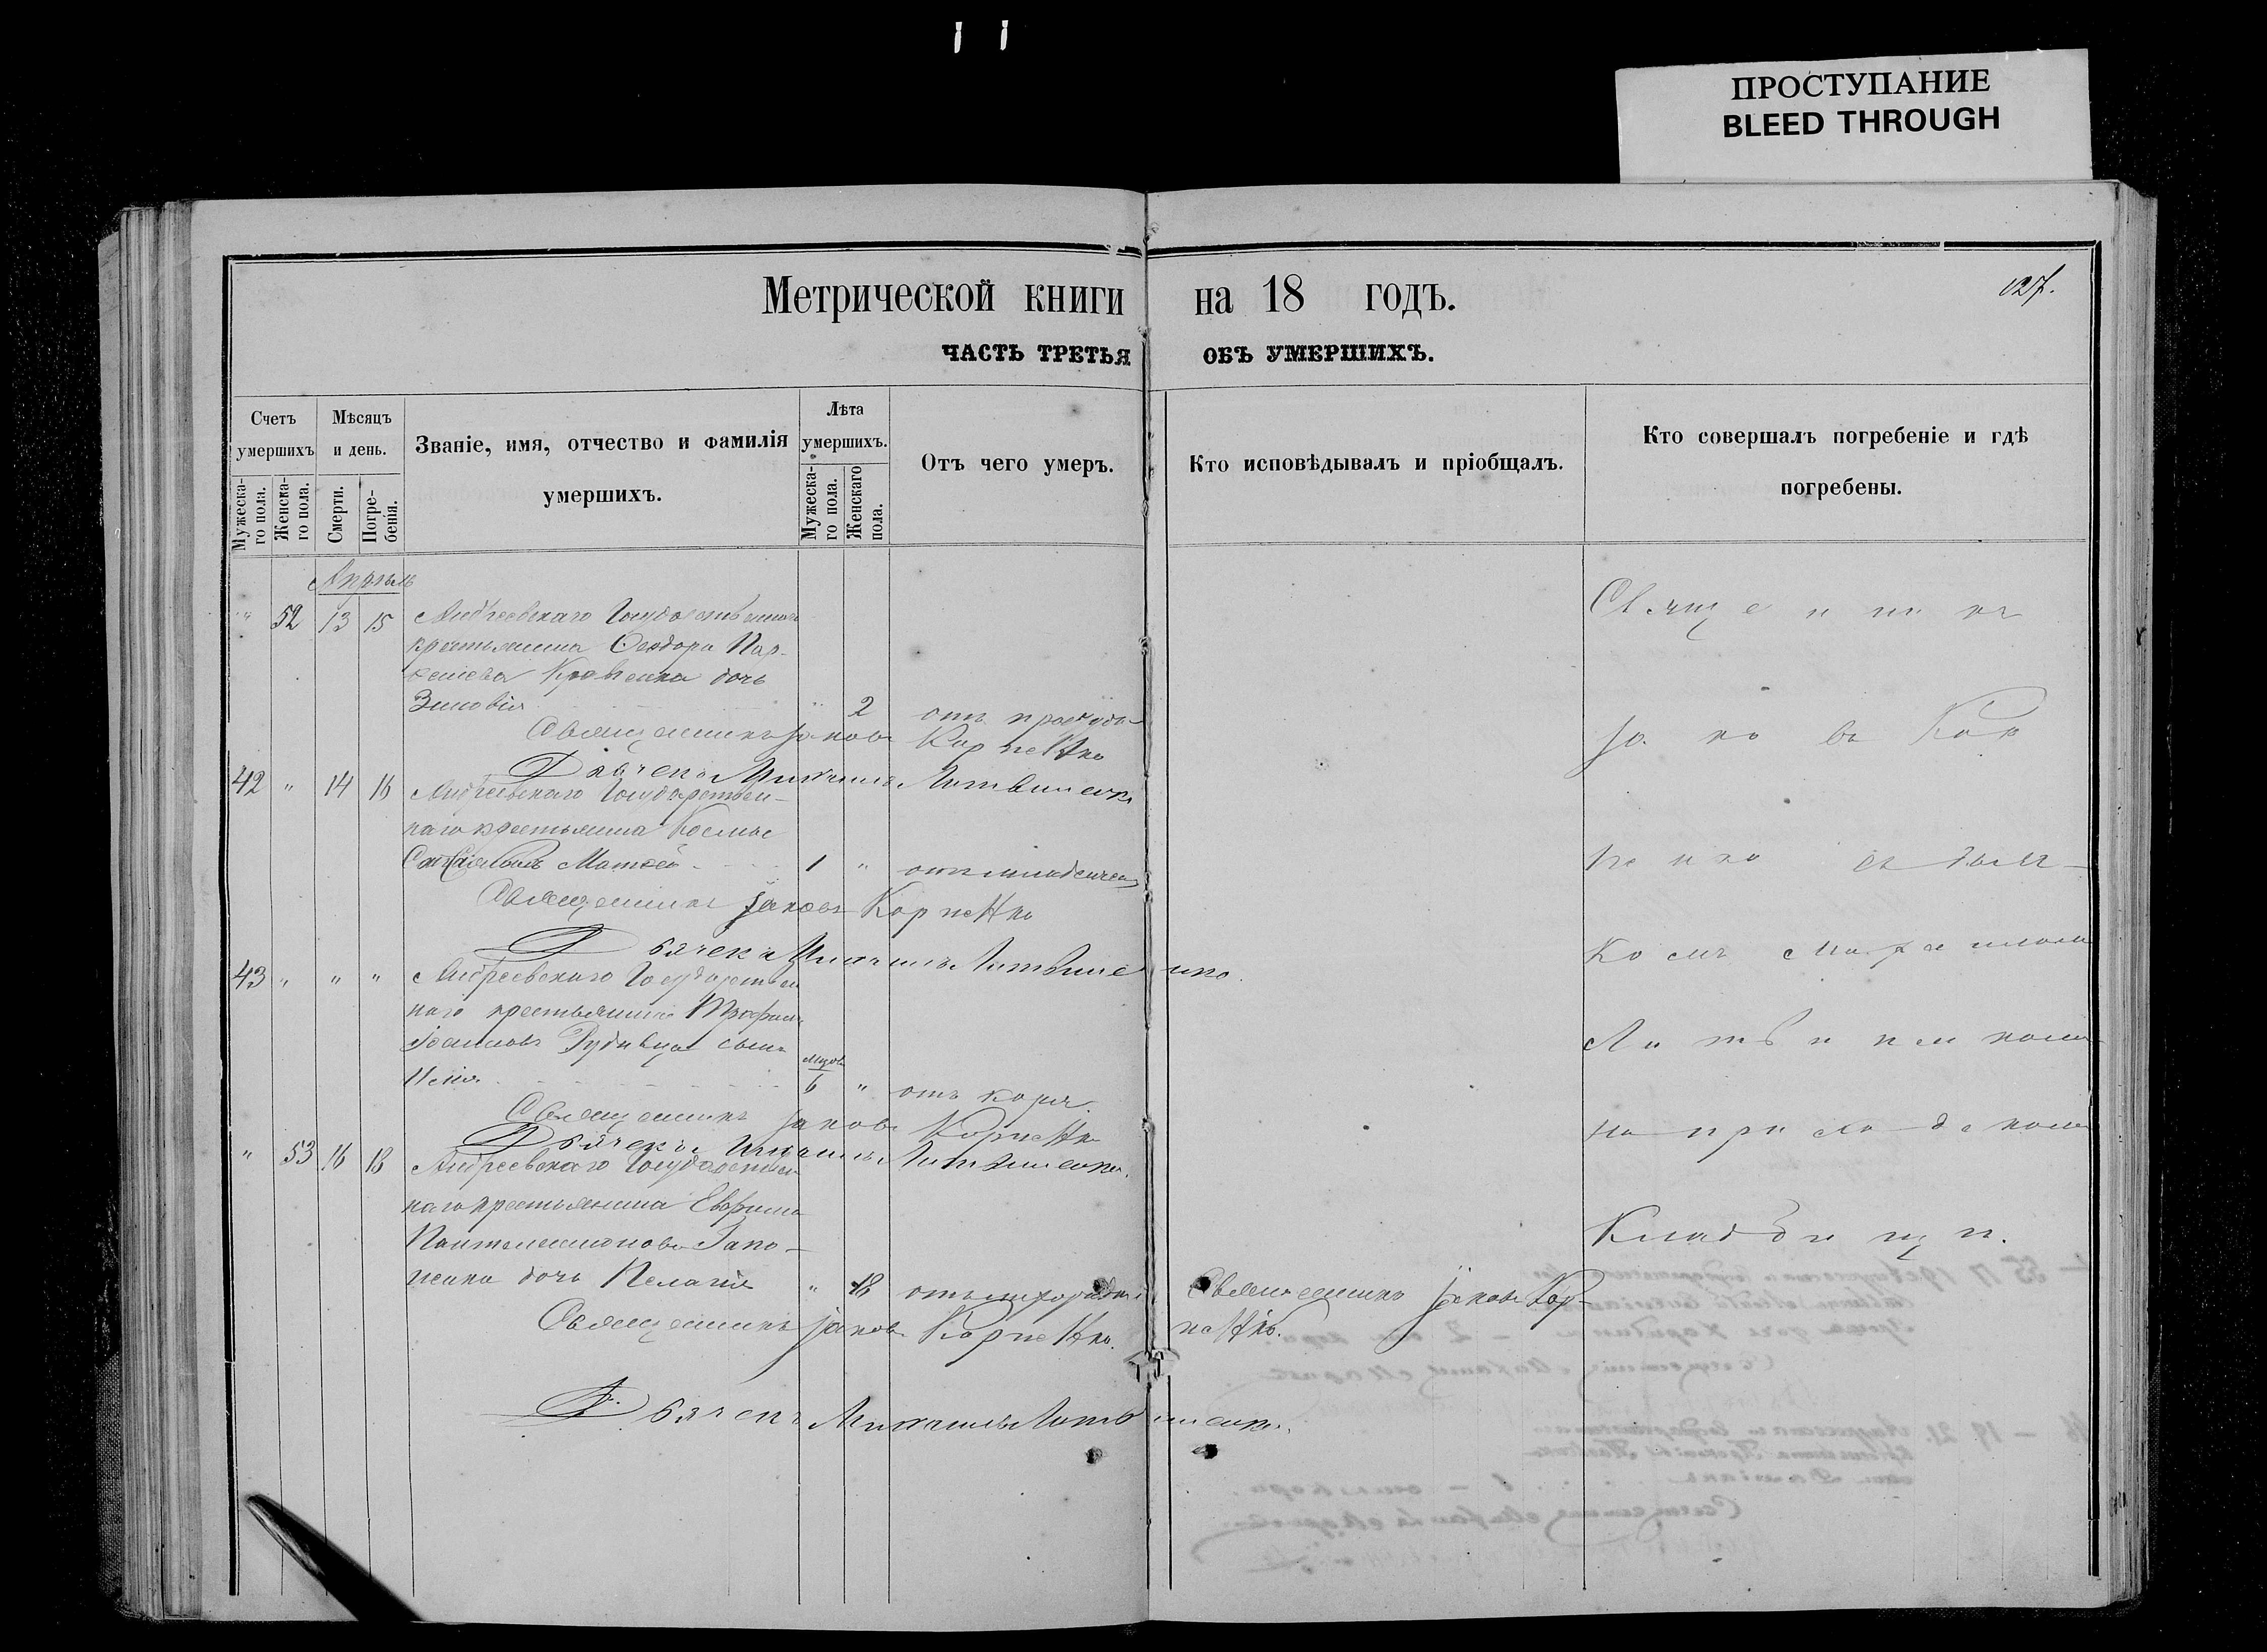 ПРОСТУПАНИЕ
BLEED THROUGH
127.
Метрической книги на 18 годъ.
ЧАСТЬ ТРЕТЬЯ ОБЪ УМЕРШИХЪ.
Счетъ умершихъ
Мужеска-го пола.
Женска-го пола.
Мѣсяцъ и день.
Смерти.
Погре-бенія.
Званіе, имя, отчество и фамилія умершихъ.
Лѣта умершихъ.
Мужеска-го пола.
Женскаго пола.
Отъ чего умеръ.
Кто исповѣдывалъ и пріобщалъ.
Кто совершалъ погребеніе и гдѣ погребены.
Апрѣль
" 52 13 15 Андреевскаго Государственнаго
крестьянина Феодора Пар-
Кравченка дочь
Зиновія " 2 отъ простуды
Священникъ Іаковъ Карпенко
Дьячекъ Михаилъ Литвиненко
42 " 14 16 Андреевскаго Государствен-
наго крестьянина Космы
Матѳей 1 " отъ младенческой
Священникъ Іаковъ Карпенко
Дьячекъ Михаилъ Литвиненко.
43 " " " Андреевскаго Государствен
наго крестьянина Трофима
сынъ
мѣсяц.
6 " отъ кори.
Священникъ Іаковъ Карпенко
Дьячекъ Михаилъ Литвиненко.
" 53 16 18 Андреевскаго Государствен
наго крестьянина Евфима
Пантелеимонова Запо-
рожца дочь Пелагія " 18 отъ лихорадки
Священникъ Іаковъ Кар-
пенко.
Священникъ Іаковъ Карпенко.
Дьячекъ Михаилъ Литвиненко.
Священникъ
Іаковъ Кар
пенко съ дьяч-
комъ Михаиломъ
Литвиненкомъ
на приходскомъ
Кладбищи.